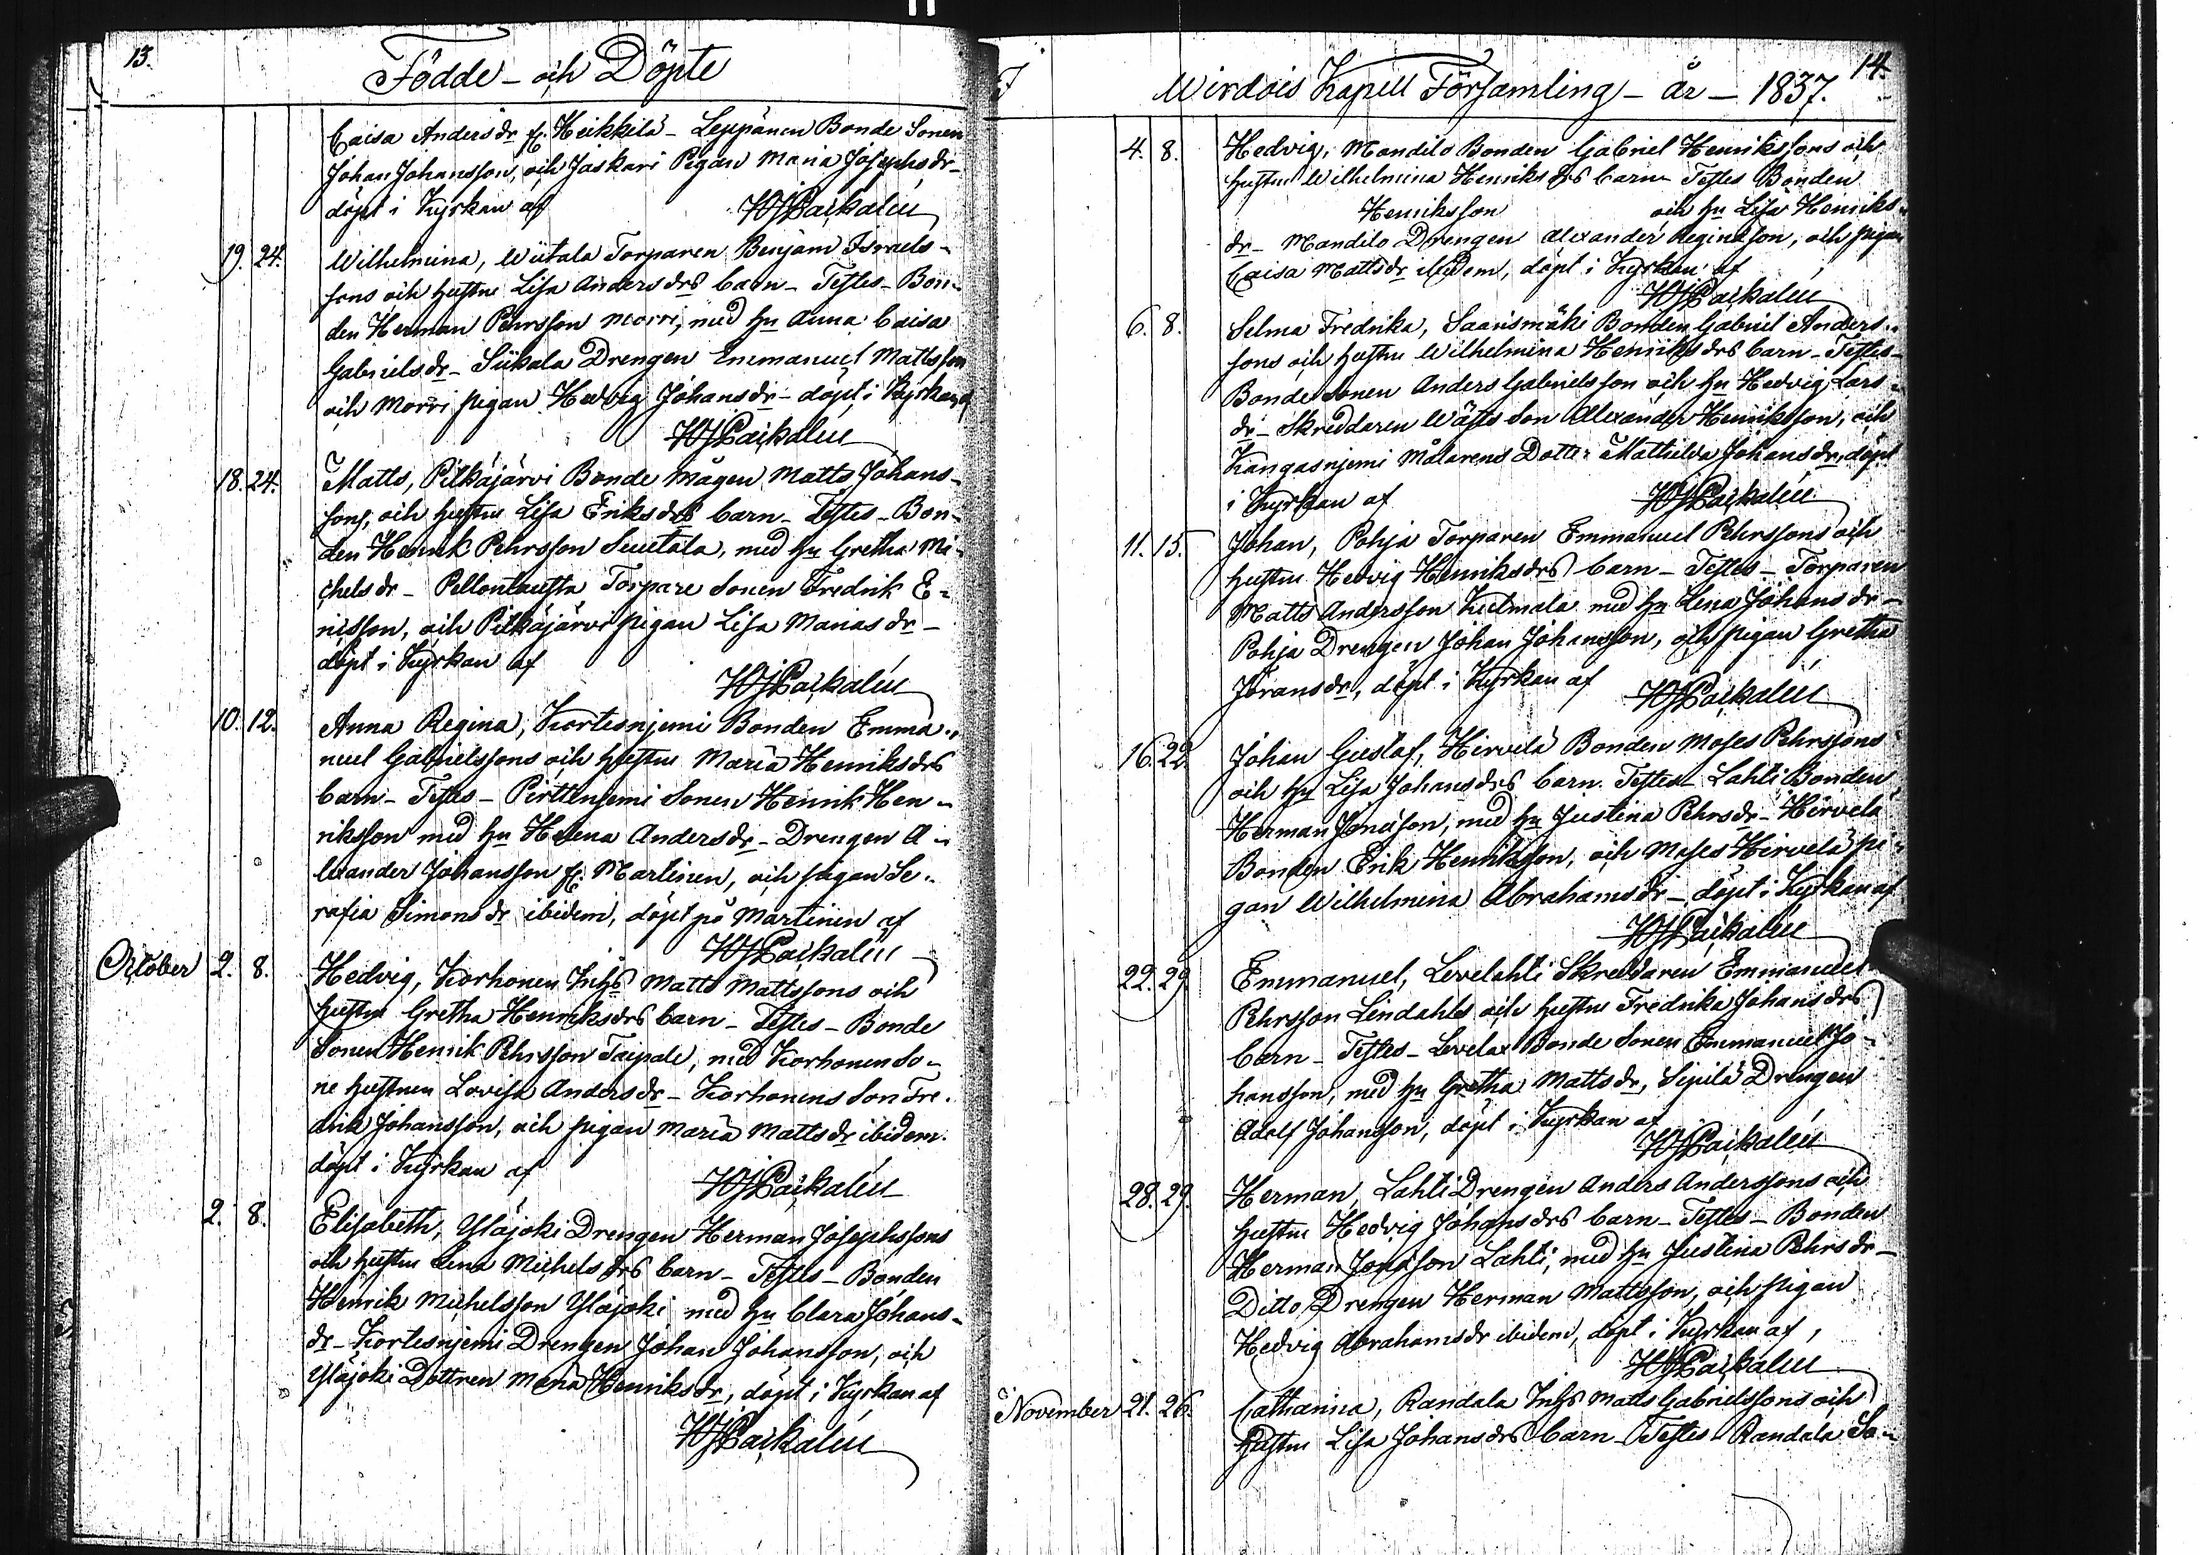 13.
Födde - och Döpte
Caisa Andersdr fr. Heikkilä - Leppänen Bonde Sonen
Johan Johansson, och Jaskari Pigan Maria Josephsdr -
döpt i Kyrkan af
19. 24. Wilhelmina, Wiitala Torparen Benjam Israels-
sons och hustru Lisa Andersdrs barn - Testes - Bon-
den Herman Pehrsson Morri, med hu Anna Caisa
Gabrielsdr - Siikala Drengen Emmanuel Mattsson
och Morri pigan Hedvig Johansdr - döpt i Kyrkan af
18. 24. Matts, Pitkäjärvi Bonde Mågen Matts Johans-
sons, och hustru Lisa Eriksdrs barn - Testes - Bon-
den Henrik Pehrsson Suutala, med hu Gretha Mi-
chelsdr - Torpare Sonen Fredrik E-
nisson, och Pitkäjärvi pigan Lisa Mariasdr -
döpt i Kyrkan af
10. 12. Anna Regina, Kortesnjemi Bonden Emma-
nuel Gabrielssons och hustru Maria Henriksdrs
barn - Testes - Pirttinjemi Sonen Henrik Hen-
riksson med hu Helena Andersdr - Drengen A-
lexander Johansson fr. Martinen, och pigan Se-
rafia Simonsdr ibidem, döpt på Martinen af
October 2. 8. Hedvig, Korhonen Inhs Matts Mattssons och
hustru Gretha Henriksdrs barn - Testes - Bonde
Sonen Henrik Pehrsson Taipale, med Korhonen So-
ne hustrun Lovisa Andersdr - Korhonens Son Fre-
drik Johansson, och pigan Maria Mattsdr ibidem.
döpt i Kyrkan af
2. 8. Elisabeth, Yläjoki Drengen Herman Josephssons
och hustru Lena Michelsdrs barn - Testes - Bonden
Henrik Michelsson Yläjoki med hu Clara Johans-
dr - Kortesnjemi Drengen Johan Johansson, och
Yläjoki Dottren Maria Henriksdr, döpt i Kyrkan af
14.
Wirdois Kapell Församling - år - 1837.
4. 8. Hedvig, Mondilo Bonden Gabriel Henrikssons och
hustru Wilhelmina Henriksdrs barn Testes Bonden
Henriksson och hu Lisa Henriks-
dr - Mandilo Drengen Alexander, och pigan
Caisa Mattsdr ibidem, döpt i Kyrkan af
6. 8. Selma Fredrika, Saarismäki Bonden Gabriel Anders-
sons och hustru Wilhelmina Henriksdrs barn - Testes -
Bonde Sonen Anders Gabrielsson och hu Hedvig Lars-
dr - Skreddaren Son Alexander Henriksson, och
Kangasnjemi Målarens Dotter Mathilda Johansdr, döpt
i Kyrkan af
11. 15. Johan, Pohja Torparen Emmanuel Pehrssons och
hustru Hedvig Henriksdrs barn - Testes - Torparen
Matts Andersson Kulmala med hu Lena Johansdr -
Pohja Drengen Johan Johansson, och pigan Gretha
Göransdr, döpt i Kyrkan af
16. 22. Johan Gustaf, Hirvelä Bonden Moses Pehrssons
och hu Lisa Johansdrs barn. Testes - Lahti Bonden
Herman Jonasson, med hu Justina Pehrsdr - Hirvelä
Bonden Erik Henriksson, och Moses Hirvelä pi-
gan Wilhelmina Abrahamsdr - döpt i Kyrkan af
22. 29. Emmanuel, Levelahti Skreddaren Emmanuel
Pehrsson Lindahls och hustru Fredrika Johansdrs
barn - Testes - Bonde Sonen Emmanuel Jo-
hansson, med hu Gretha Mattsdr, Sipilä Drengen
Adolf Johansson, döpt i Kyrkan af
28. 29. Herman, Lahti Drengen Anders Anderssons och
hustru Hedvig Johansdrs barn - Testes - Bonden
Herman Jonasson Lahti, med hu Justina Pehrsdr -
Ditto Drengen Herman Mattsson, och pigan
Hedvig Abrahamsdr ibidem, döpt i Kyrkan af,
November 21. 26. Catharina, Randala Inhs Matts Gabrielssons och
hustru Lisa Johansdrs barn - Testes - Randala So-